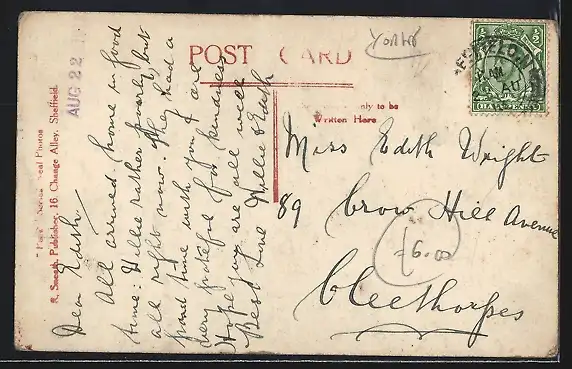 POST CARD
Yorks
AUG 22
only to be
Written Here
HALFPENNY
R. Sneath, Publisher, 16, Change Alley, Sheffield.
Real Photos
Dear Edith.
All arrived home in good
time. Willie rather poorly but
all right now. They had a
good time with you & are
very grateful for kindness
Hope you are all well
Best Love Nellie & Edith
Miss Edith Wright
89 Crow Hill Avenue
Cleethorpes
£6.00